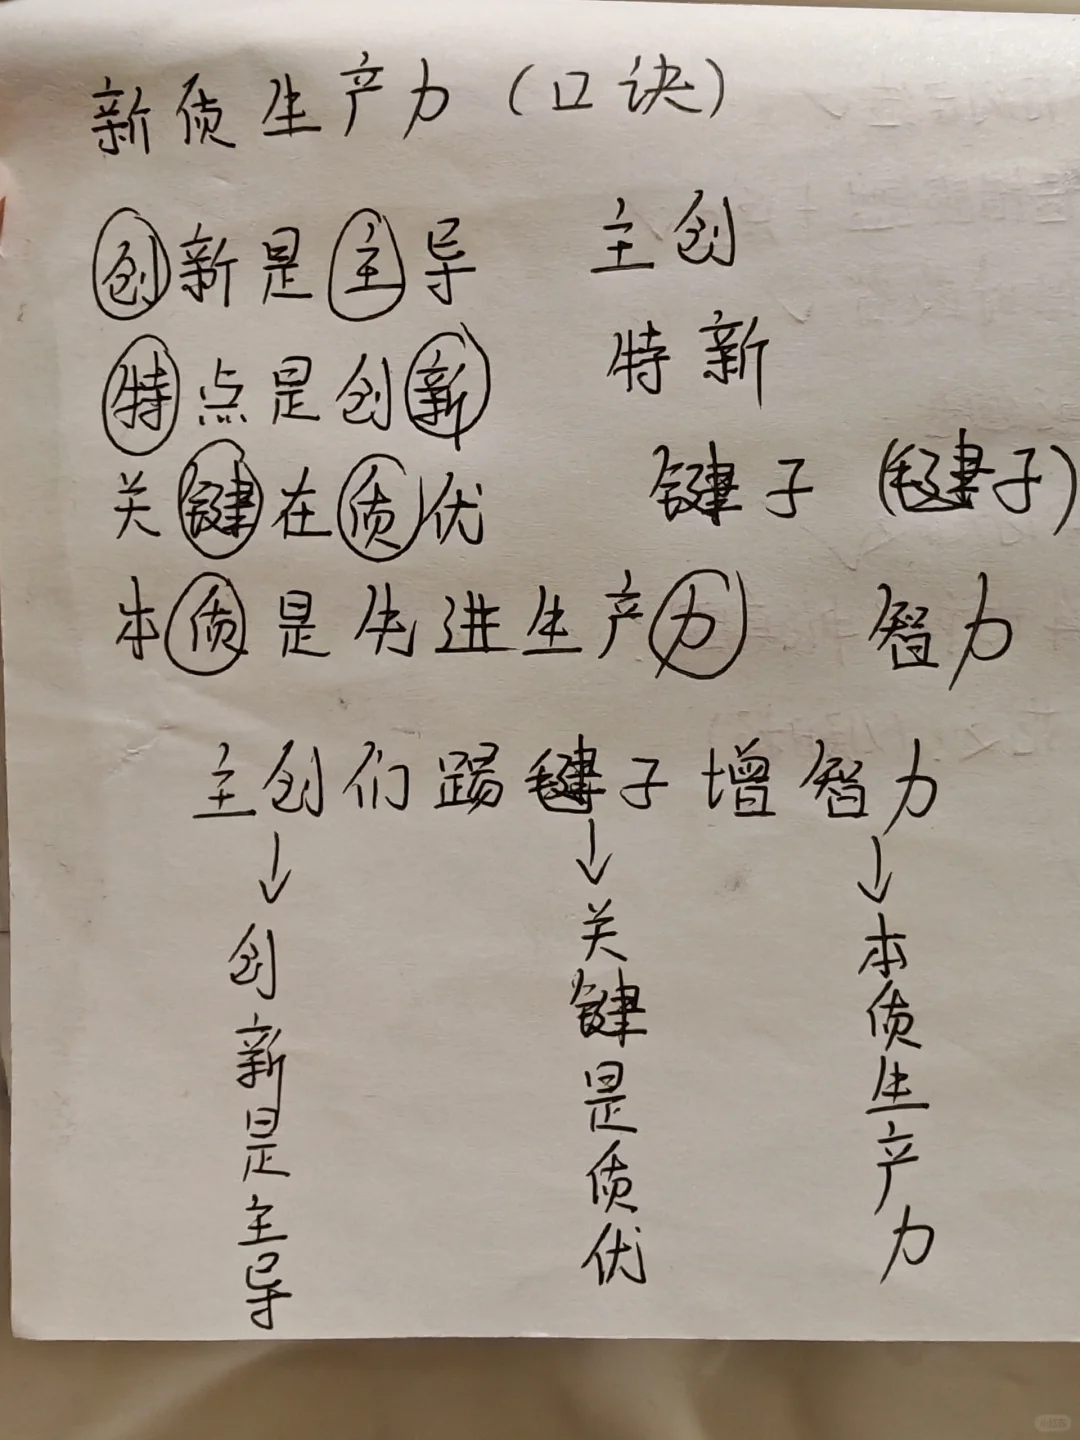 新质生产力（口诀）
创新是主导 主创
特点是创新 特新
关键在质优 键子（毽子）
本质是先进生产力 智力
主创们踢毽子增智力
↓ ↓ ↓
创新是主导
关键是质优
本质生产力